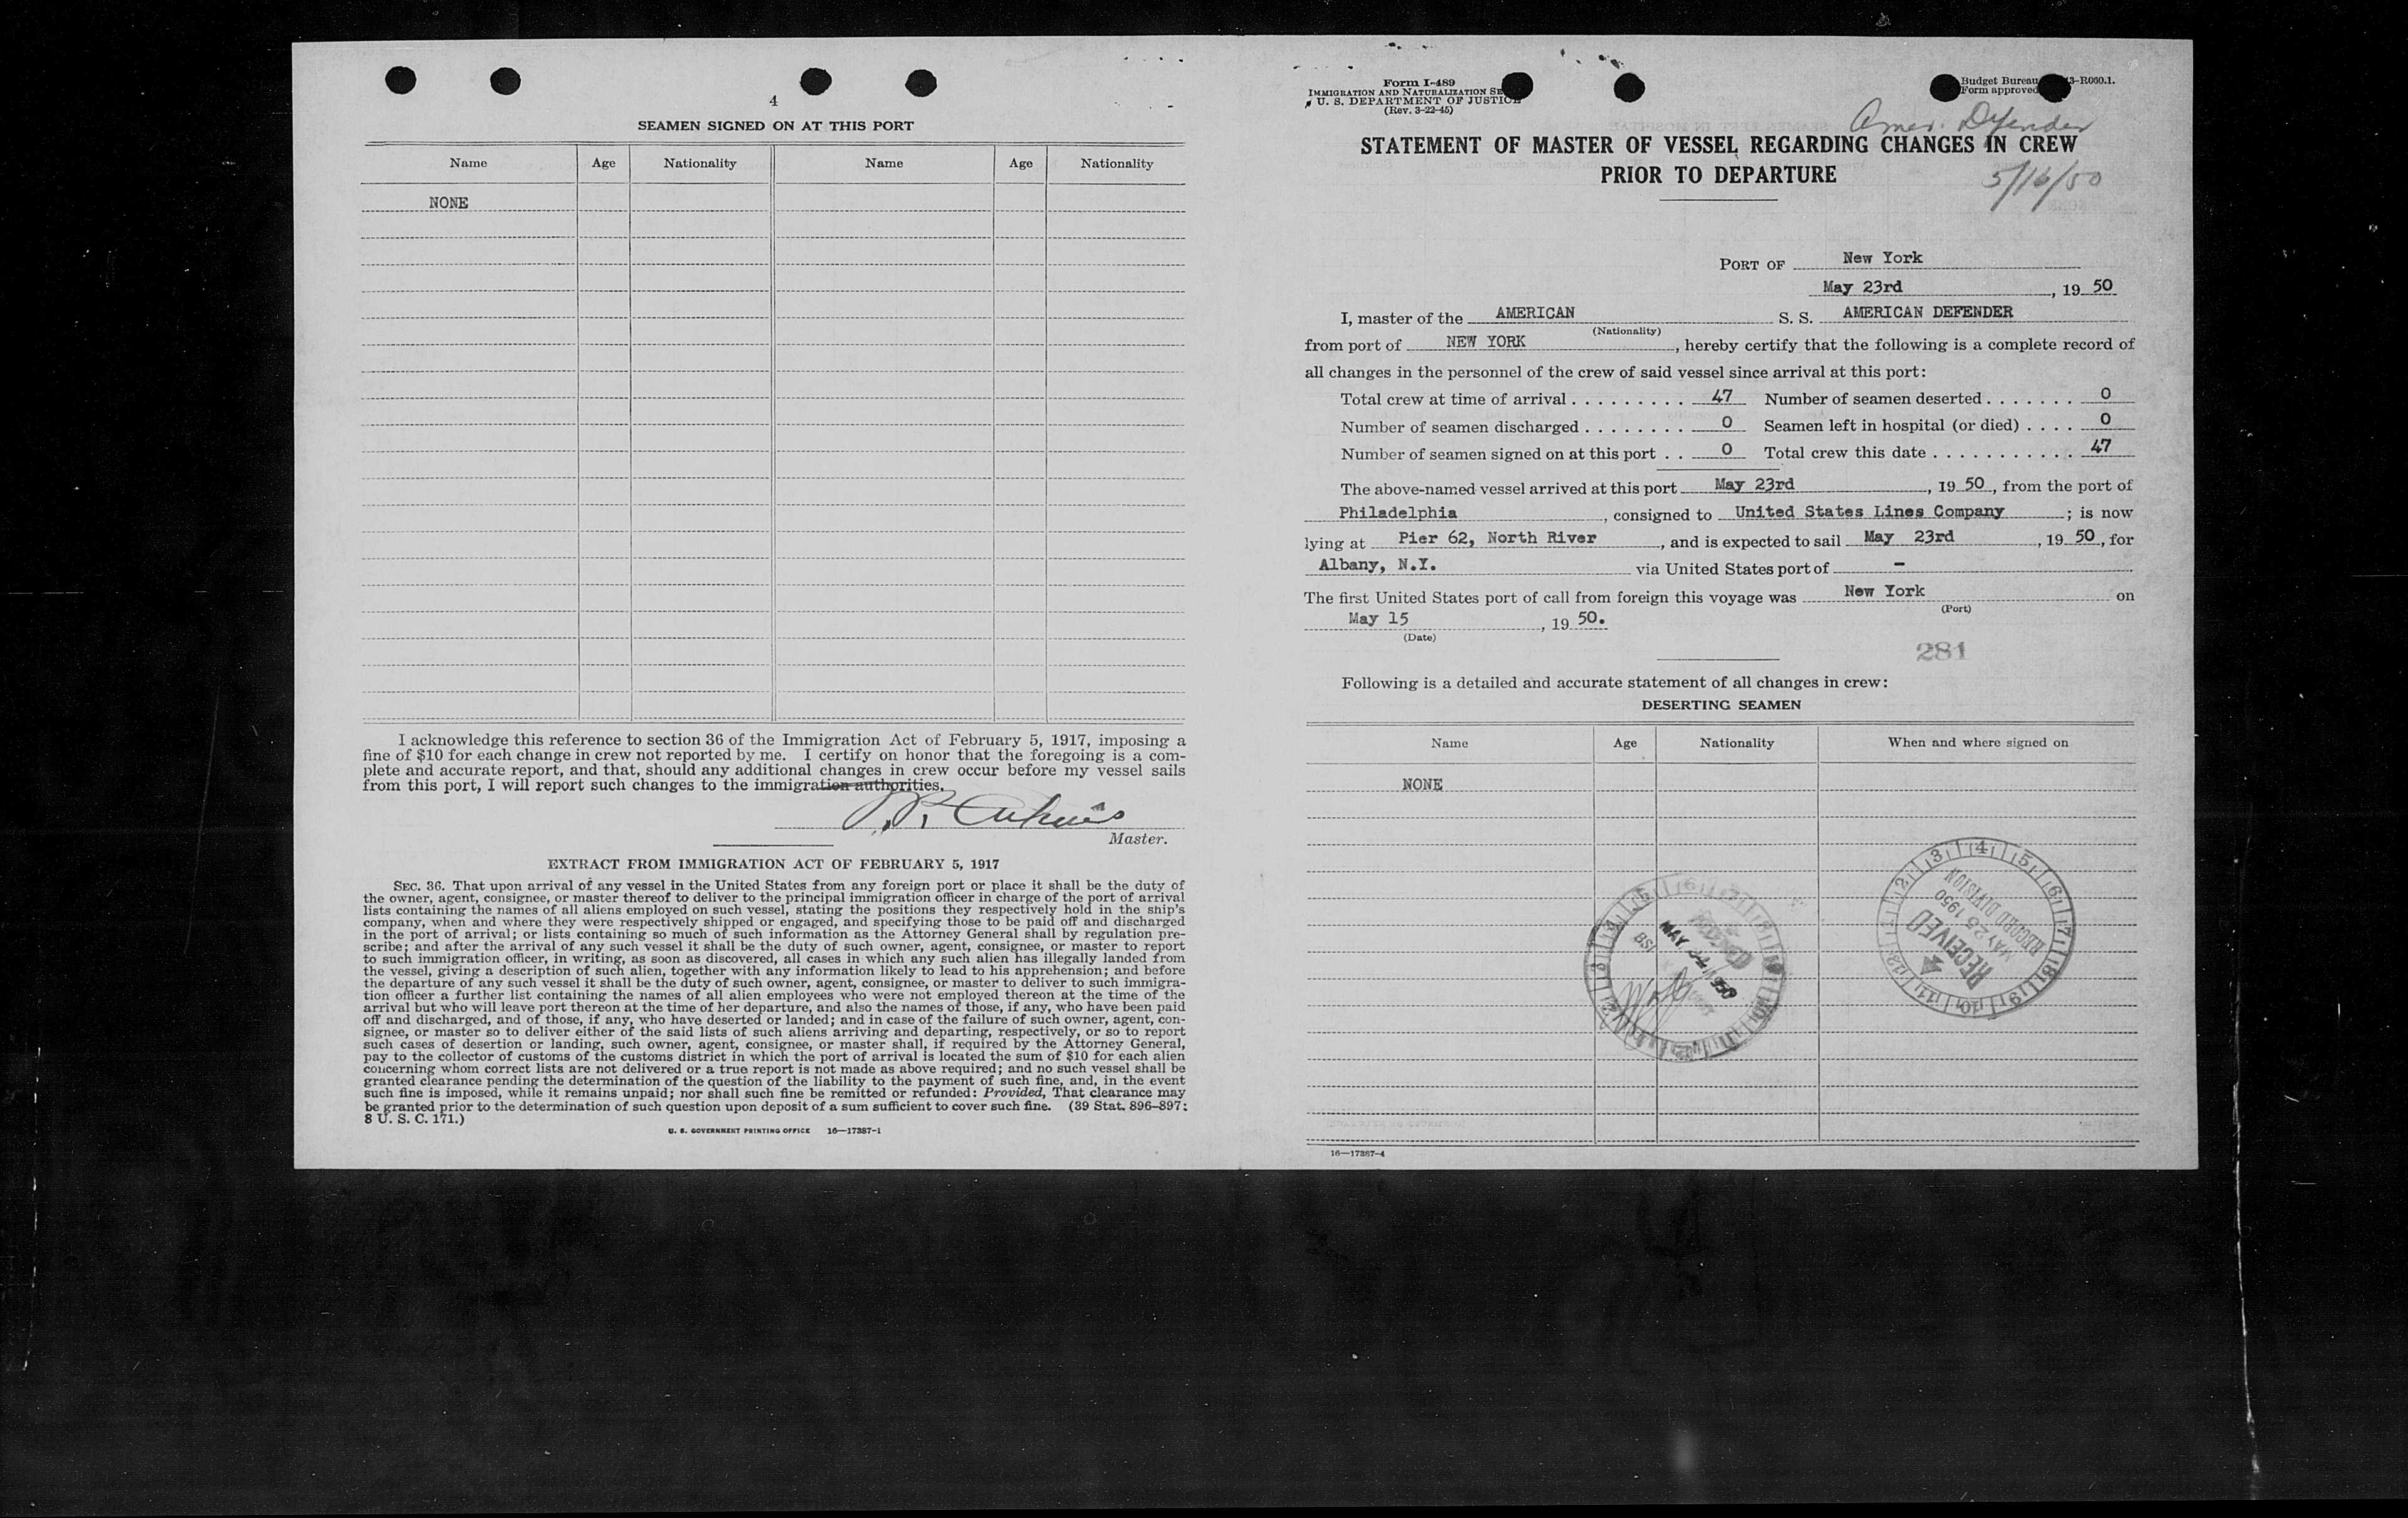 4
SEAMEN SIGNED ON AT THIS PORT
Name Age Nationality Name Age Nationality
NONE
I acknowledge this reference to section 36 of the Immigration Act of February 5, 1917, imposing a
fine of $10 for each change in crew not reported by me. I certify on honor that the foregoing is a com-
plete and accurate report, and that, should any additional changes in crew occur before my vessel sails
from this port, I will report such changes to the immigration authorities.
Master.
EXTRACT FROM IMMIGRATION ACT OF FEBRUARY 5, 1917
SEC. 36. That upon arrival of any vessel in the United States from any foreign port or place it shall be the duty of
the owner, agent, consignee, or master thereof to deliver to the principal immigration officer in charge of the port of arrival
lists containing the names of all aliens employed on such vessel, stating the positions they respectively hold in the ship's
company, when and where they were respectively shipped or engaged, and specifying those to be paid off and discharged
in the port of arrival; or lists containing so much of such information as the Attorney General shall by regulation pre-
scribe; and after the arrival of any such vessel it shall be the duty of such owner, agent, consignee, or master to report
to such immigration officer, in writing, as soon as discovered, all cases in which any such alien has illegally landed from
the vessel, giving a description of such alien, together with any information likely to lead to his apprehension; and before
the departure of any such vessel it shall be the duty of such owner, agent, consignee, or master to deliver to such immigra-
tion officer a further list containing the names of all alien employees who were not employed thereon at the time of the
arrival but who will leave port thereon at the time of her departure, and also the names of those, if any, who have been paid
off and discharged, and of those, if any, who have deserted or landed; and in case of the failure of such owner, agent, con-
signee, or master so to deliver either of the said lists of such aliens arriving and departing, respectively, or so to report
such cases of desertion or landing, such owner, agent, consignee, or master shall, if required by the Attorney General,
pay to the collector of customs of the customs district in which the port of arrival is located the sum of $10 for each alien
concerning whom correct lists are not delivered or a true report is not made as above required; and no such vessel shall be
granted clearance pending the determination of the question of the liability to the payment of such fine, and, in the event
such fine is imposed, while it remains unpaid; nor shall such fine be remitted or refunded: Provided, That clearance may
be granted prior to the determination of such question upon deposit of a sum sufficient to cover such fine. (39 Stat. 896–897;
8 U. S. C. 171.)
U. S. GOVERNMENT PRINTING OFFICE 16—17387-1
Form I-489
IMMIGRATION AND NATURALIZATION SE
U. S. DEPARTMENT OF JUSTICE
(Rev. 3-22-45)
Budget Bureau 3-R060.1.
Form approved
Amer. Defender
STATEMENT OF MASTER OF VESSEL REGARDING CHANGES IN CREW
PRIOR TO DEPARTURE
5/16/50
PORT OF New York
May 23rd, 19 50
I, master of the AMERICAN S. S. AMERICAN DEFENDER
(Nationality)
from port of NEW YORK, hereby certify that the following is a complete record of
all changes in the personnel of the crew of said vessel since arrival at this port:
Total crew at time of arrival . . . . . . . . . 47 Number of seamen deserted . . . . . . . 0
Number of seamen discharged . . . . . . . . 0 Seamen left in hospital (or died) . . . . 0
Number of seamen signed on at this port . . 0 Total crew this date . . . . . . . . . . . 47
The above-named vessel arrived at this port May 23rd, 19 50, from the port of
Philadelphia, consigned to United States Lines Company; is now
lying at Pier 62, North River, and is expected to sail May 23rd, 19 50, for
Albany, N.Y. via United States port of –
The first United States port of call from foreign this voyage was New York on
(Port)
May 15, 19 50.
(Date)
281
Following is a detailed and accurate statement of all changes in crew:
DESERTING SEAMEN
Name Age Nationality When and where signed on
NONE
RECEIVED
MAY 24 1950
BSI
RECEIVED
MAY 25 1950
RECORD DIVISION
16—17387-4